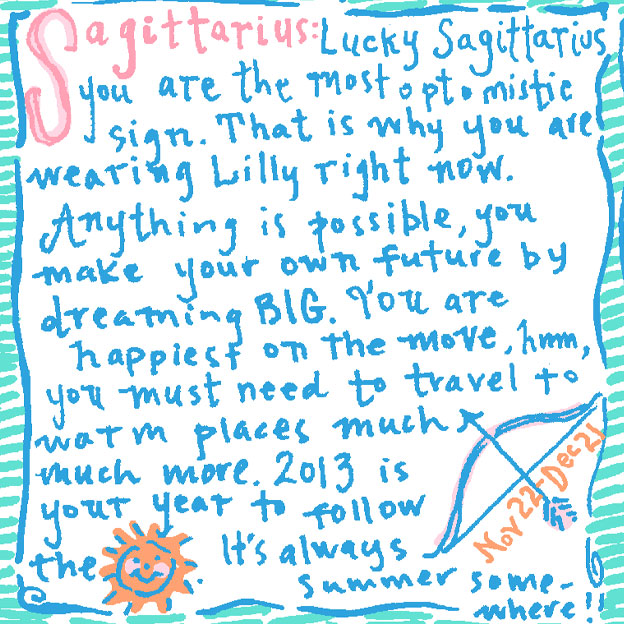 Sagittarius: Lucky Sagittarius
you are the most optomistic
sign. That is why you are
wearing Lilly right now.
Anything is possible, you
make your own future by
dreaming BIG. You are
happiest on the move, hmm,
you must need to travel to
warm places much
much more. 2013 is
your year to follow
the . It's always
summer some-
where!!
Nov 22-Dec 21